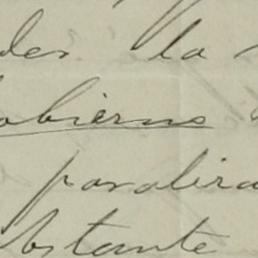 des la
obierno
paralira
bstante